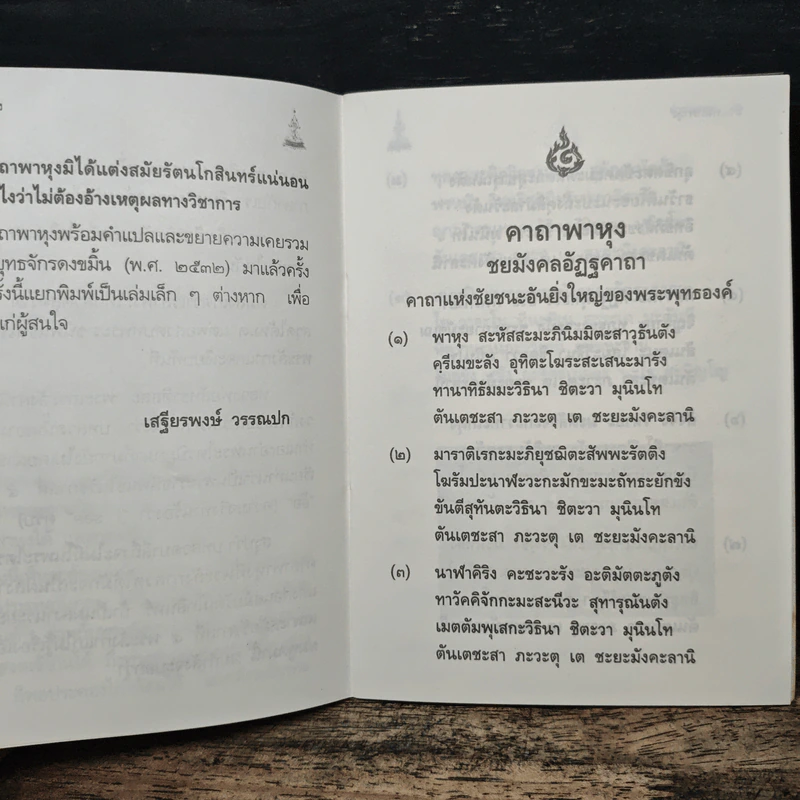 ถาพาหุงมิได้แต่งสมัยรัตนโกสินทร์แน่นอน
ไงว่าไม่ต้องอ้างเหตุผลทางวิชาการ
ถาพาหุงพร้อมคำแปลและขยายความเคยรวม
ยุทธจักรดงขมิ้น (พ.ศ. ๒๕๓๒) มาแล้วครั้ง
รั้งนี้แยกพิมพ์เป็นเล่มเล็ก ๆ ต่างหาก เพื่อ
แก่ผู้สนใจ
เสฐียรพงษ์ วรรณปก
คาถาพาหุง
ชยมังคลอัฏฐคาถา
คาถาแห่งชัยชนะอันยิ่งใหญ่ของพระพุทธองค์
(๑) พาหุง สะหัสสะมะภินิมมิตะสาวุธันตัง
ครีเมขะลัง อุทิตะโฆระสะเสนะมารัง
ทานาทิธัมมะวิธินา ชิตะวา มุนินโท
ตันเตชะสา ภะวะตุ เต ชะยะมังคะลานิ
(๒) มาราติเรกะมะภิยุชฌิตะสัพพะรัตติง
โฆรัมปะนาฬะวะกะมักขะมะถัทธะยักขัง
ขันตีสุทันตะวิธินา ชิตะวา มุนินโท
ตันเตชะสา ภะวะตุ เต ชะยะมังคะลานิ
(๓) นาฬาคิริง คะชะวะรัง อะติมัตตะภูตัง
ทาวัคคิจักกะมะสะนีวะ สุทารุณันตัง
เมตตัมพุเสกะวิธินา ชิตะวา มุนินโท
ตันเตชะสา ภะวะตุ เต ชะยะมังคะลานิ